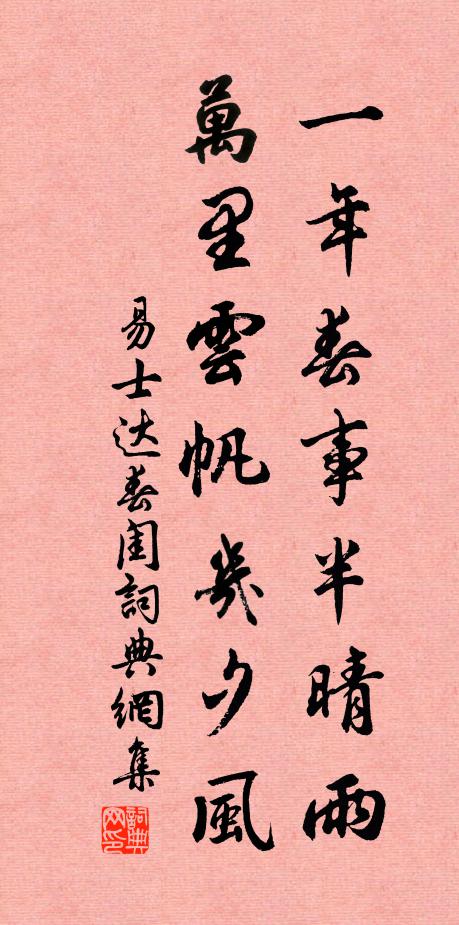 一年春事半晴雨
萬里雲帆幾夕風
易士达春闺詞典網集
詞典网印